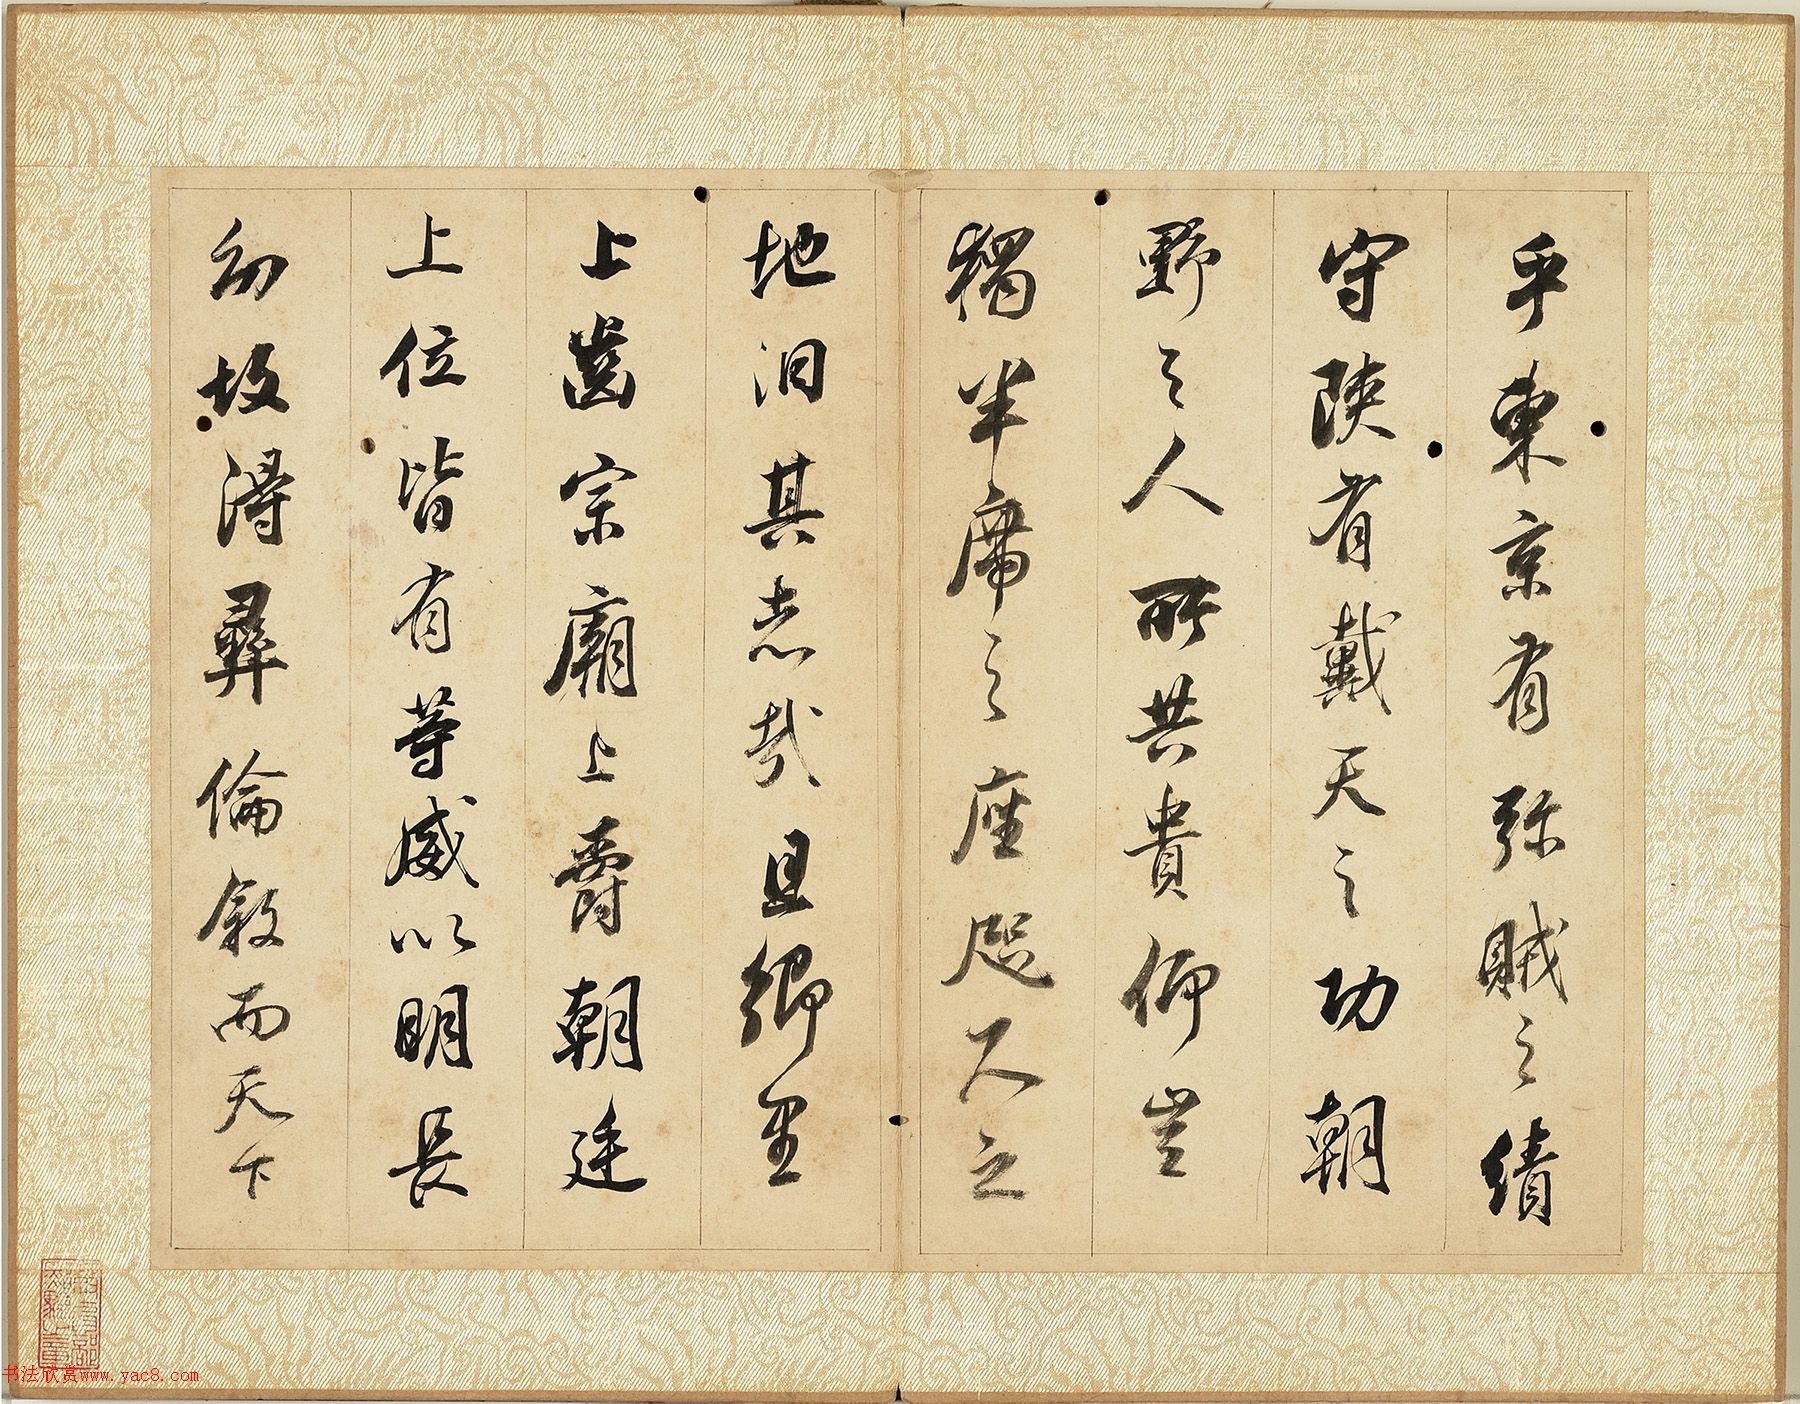 平東京有殄賊之績
守陝有戴天之功朝
野之人所共貴仰豈
獨半席之座咫尺之
地汩其志哉且鄉里
上齒宗廟上爵朝廷
上位皆有等威以明長
幼故得彝倫敘而天下
书法欣赏www.yac8.com